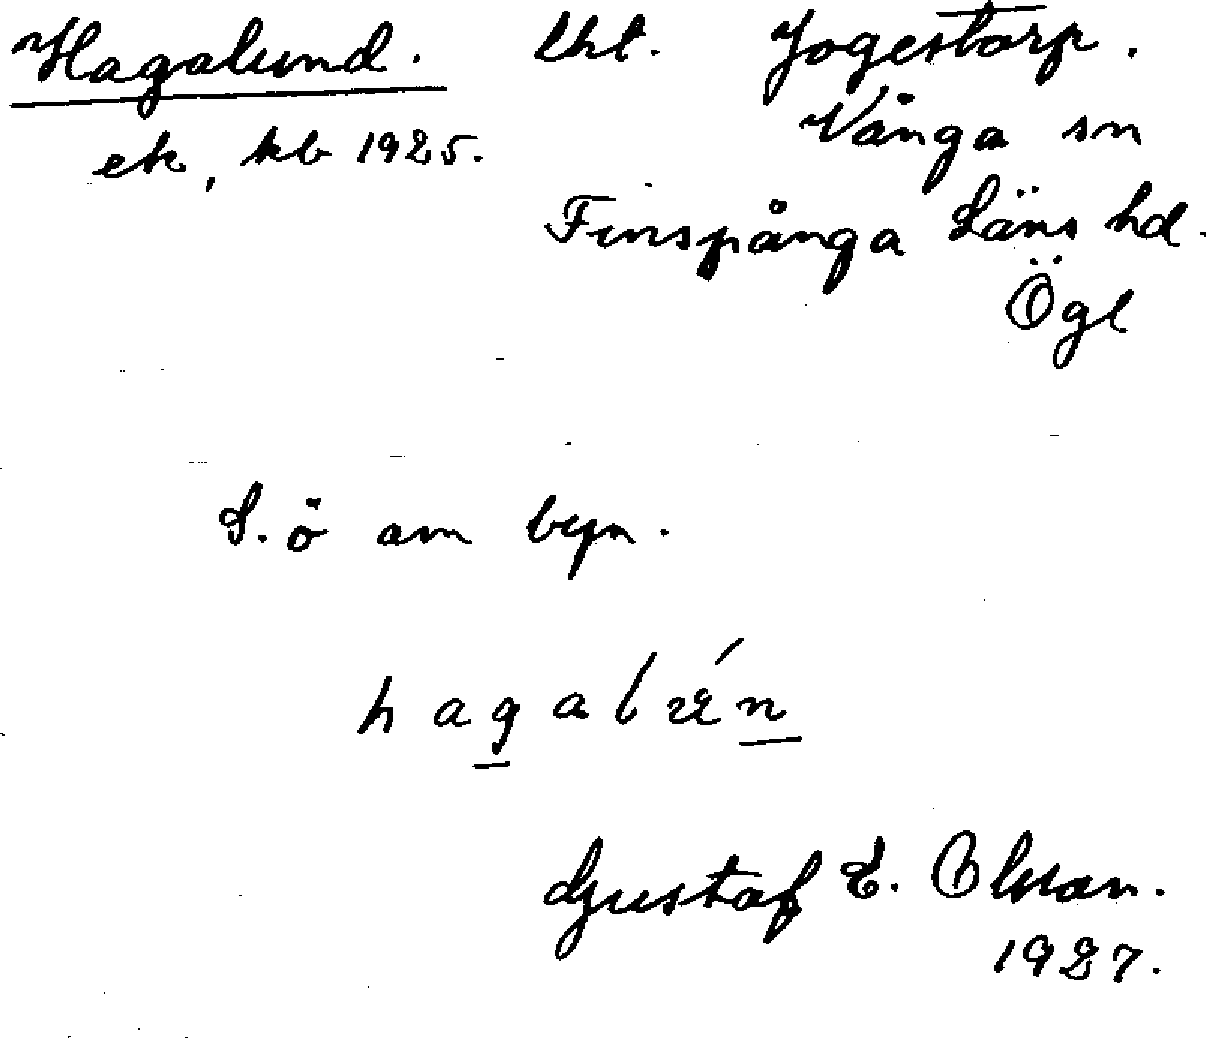 Hagalund. lht. Jogestorp.
ek, kb 1925. Vånga sn
Finspånga Läns hd.
Ögl
S. ö om byn.
Gustaf E. Olsson.
1927.